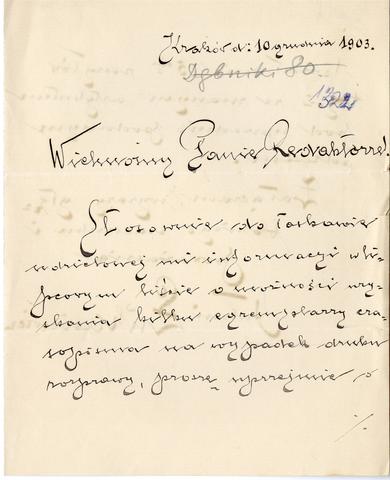 Kraków d: 10 grudnia 1903.
Dębniki 80.
1322
Wielmożny Panie Redaktorze!
Stosownie do łaskawie
udzielonej mi informacyi w li-
pcowym liście o możności uzy-
skania kilku egzemplarzy cza-
sopisma na wypadek druku
rozprawy, proszę uprzejmie o
./.